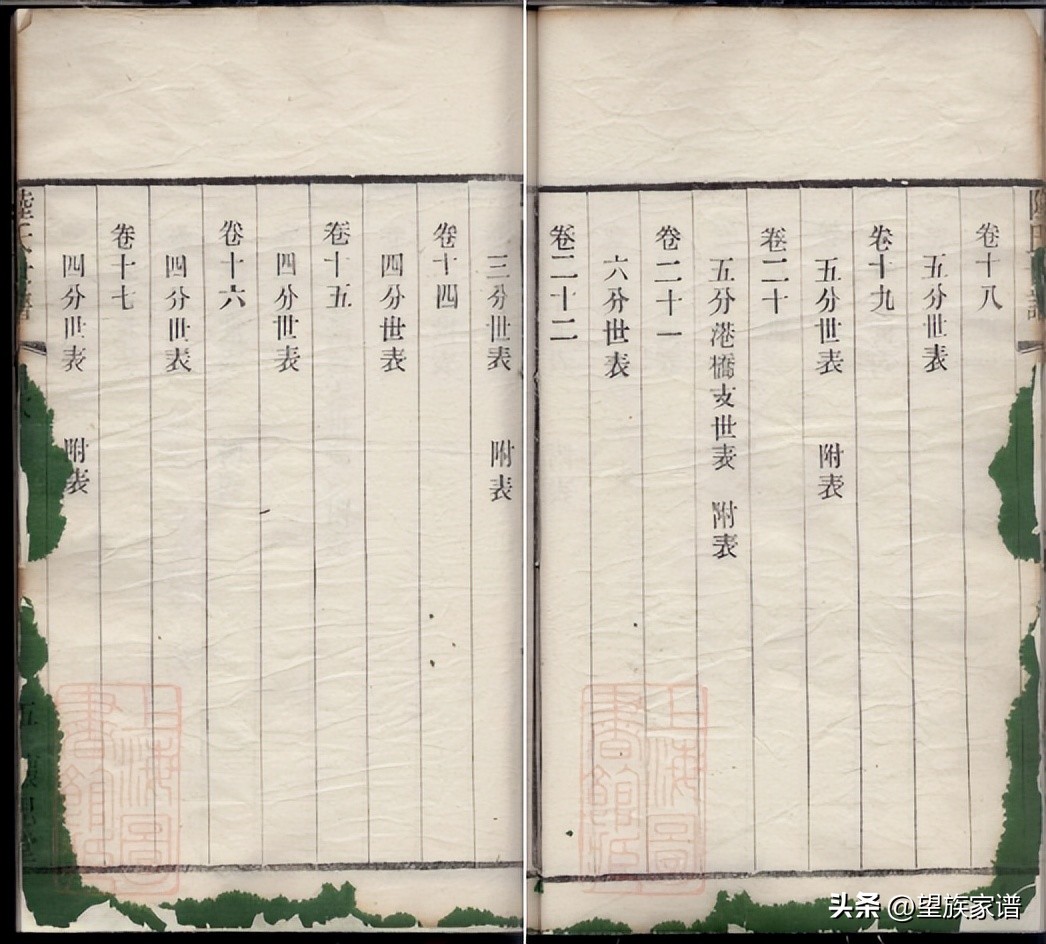 三分世表　附表
卷十四
四分世表
卷十五
四分世表
卷十六
四分世表
卷十七
四分世表　附表
上海圖書館藏
卷十八
五分世表
卷十九
五分世表　附表
卷二十
五分港橋支世表　附表
卷二十一
六分世表
卷二十二
上海圖書館藏
头条 @望族家谱